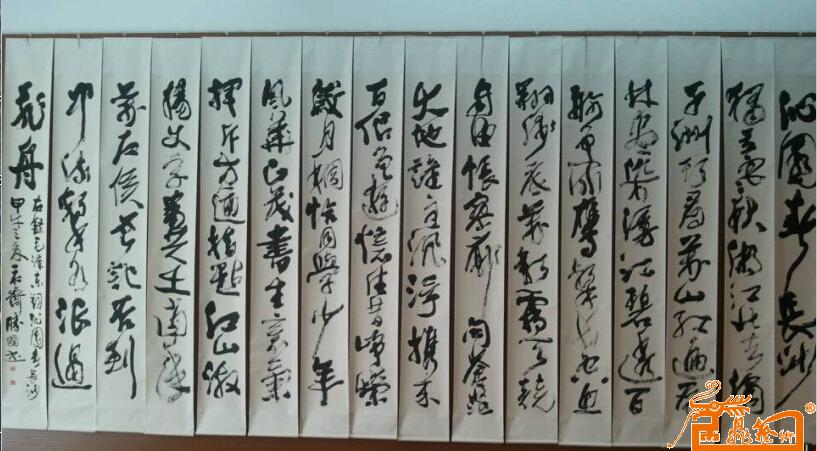 沁園春長沙
獨立寒秋湘江北去橘
子洲頭看萬山紅遍層
林盡染漫江碧透百
舸爭流鷹擊長空魚
翔淺底萬類霜天競
自由悵寥廓問蒼茫
大地誰主沉浮携來
百侣曾遊憶往昔崢嶸
歲月稠恰同學少年
風華正茂書生意氣
揮斥方遒指點江山激
揚文字糞土當年
萬户侯曾記否到
中流擊水浪遏
飛舟
右録毛澤東詞沁園春長沙
甲午之